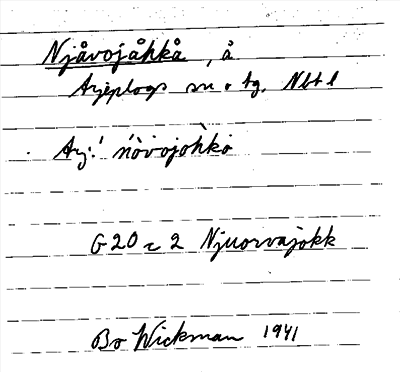 Njåvojåhkå, å
Arjeplogs sn o tg. Nbt l
Arj: ńòvojoh̀kò
G20 c 2 Njuorvajokk
Bo Wickman 1941